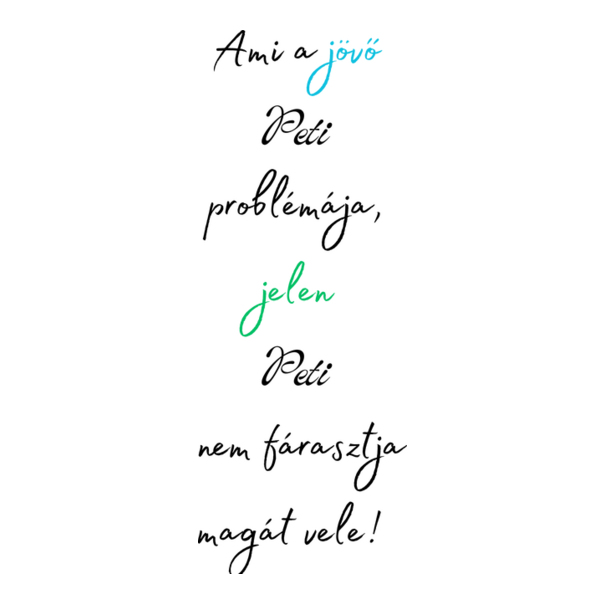 Ami a jövő
Peti
problémája,
jelen
Peti
nem fárasztja
magát vele!